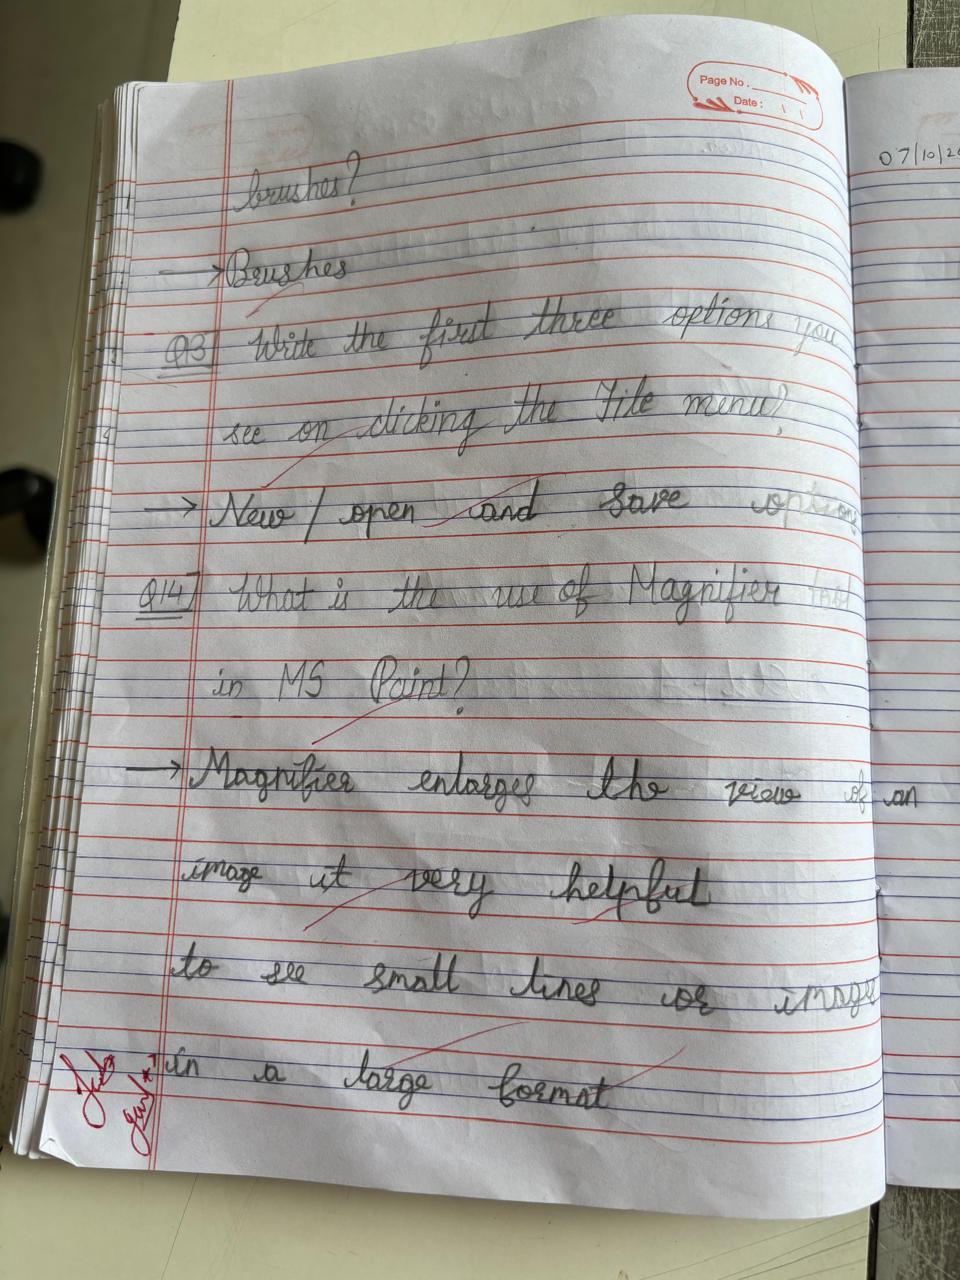 Page No.
Date:
07/10/20
brushes?
→ Brushes
Q13 Write the first three options you
see on clicking the File menu?
→ New / open and save option
Q14 What is the use of Magnifier tool
in MS Paint?
→ Magnifier enlarges the view of an
image it very helpful
to see small lines or image
in a large format